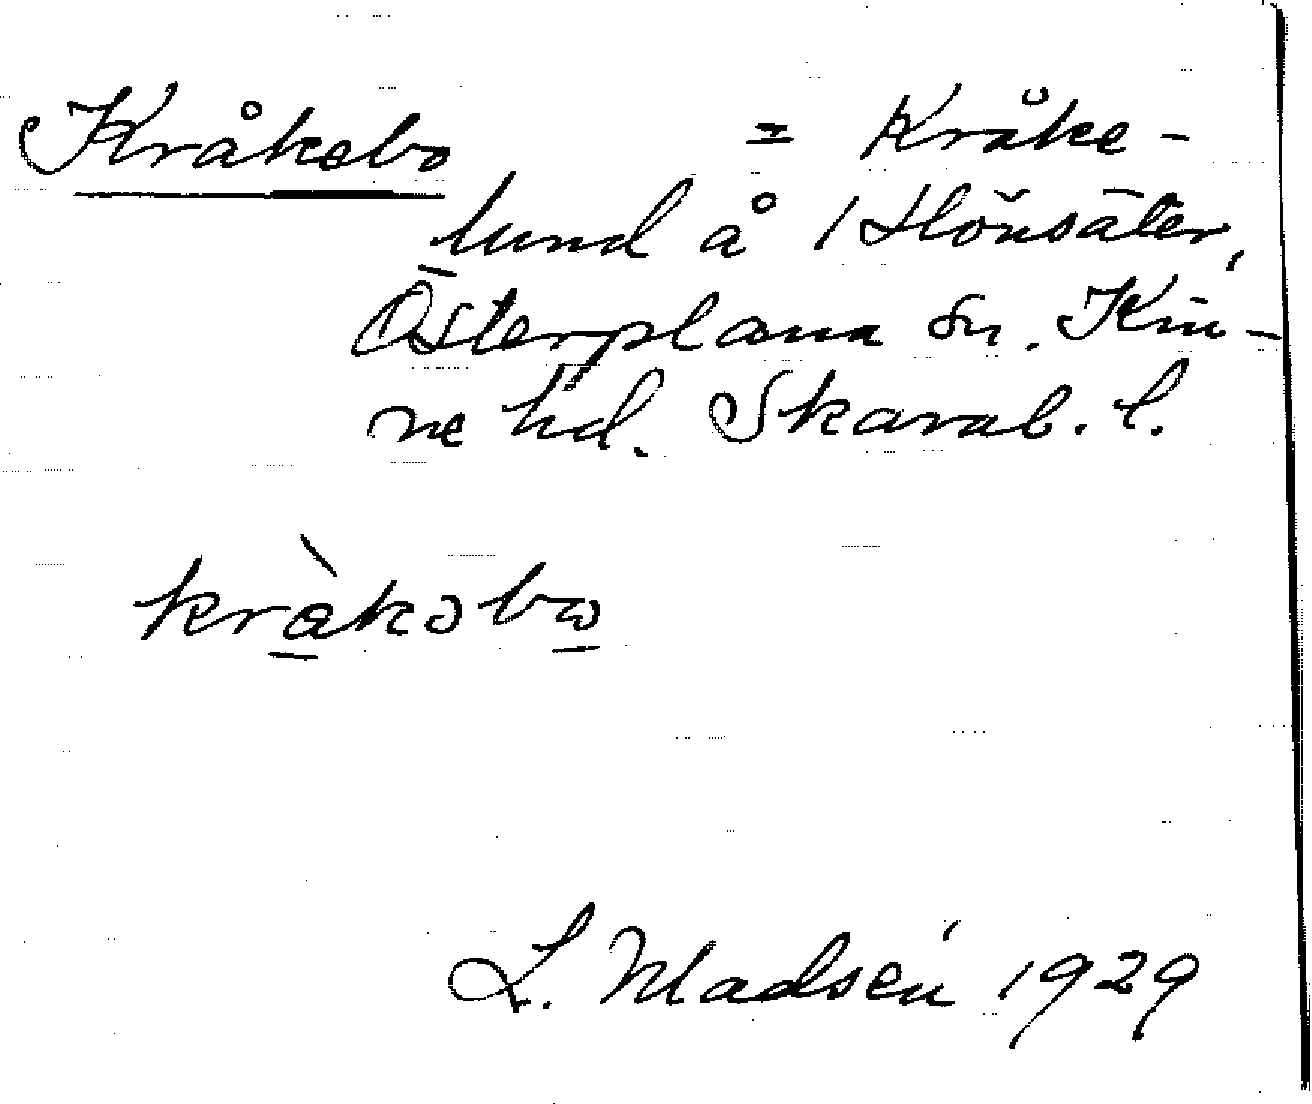 Kråkebo = Kråke-
lund å 1 Hönsäter,
Österplana sn. Kin-
ne hd. Skarab. l.
kràkəbω
L. Madsén 1929